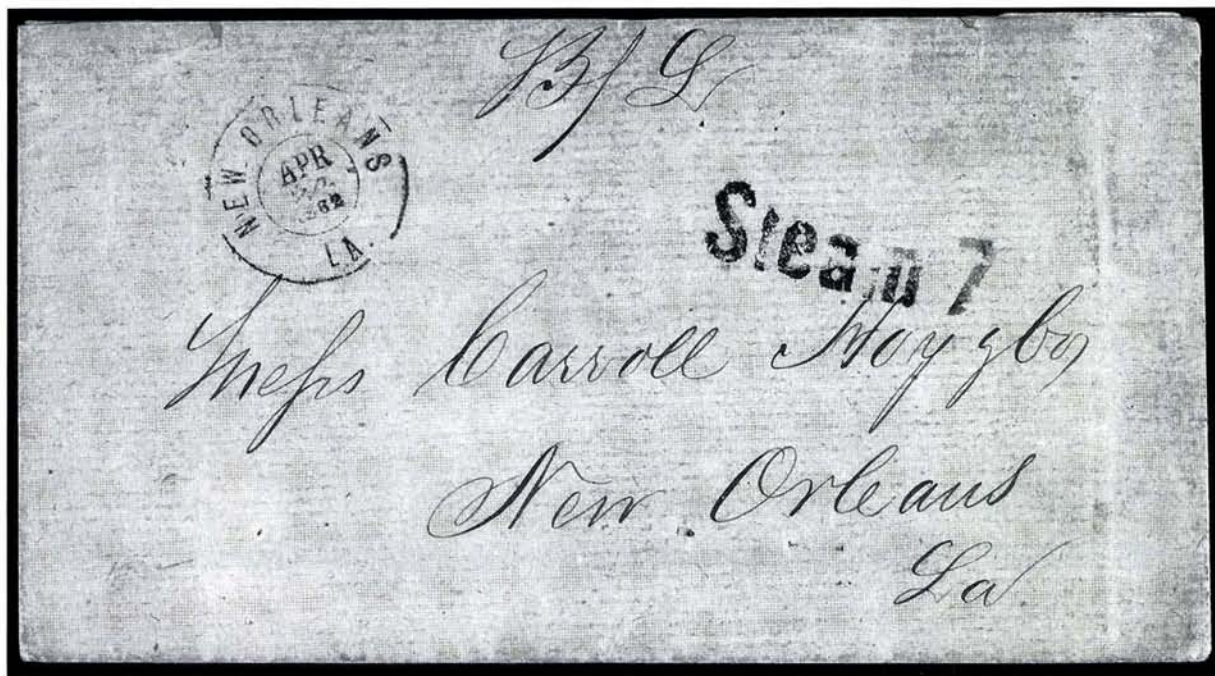 B/L
NEW ORLEANS
APR
1862
LA.
Steam 7
Mess Carroll Hoy & Co
New Orleans
La